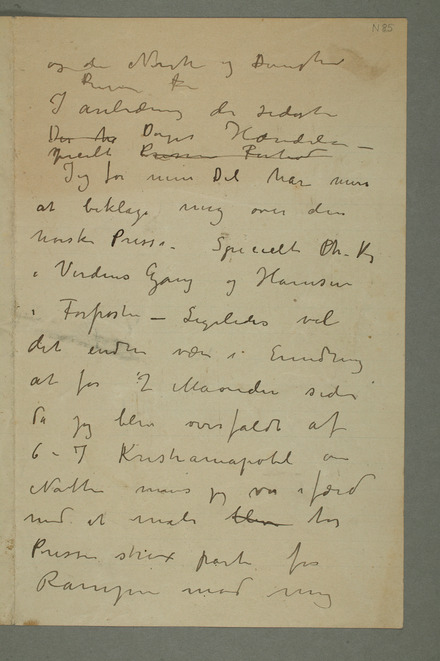 N 85
og den Norske og Danske
I anledning de sidste
Dages Hændelser –
specielt
Jeg for min Del har
at beklage mig over den
norske Presse. Specielt Ch. Kg
i Verdens Gang og Hamsun
i Forposten – Ligeledes vil
det endnu være i Erindring
at for 2 Maaneder siden
da jeg blev overfaldt af
6–7 Kristianiapøbel om
Natten mens jeg var ifærd
med at male tog
Pressen strax parti for
mod mig